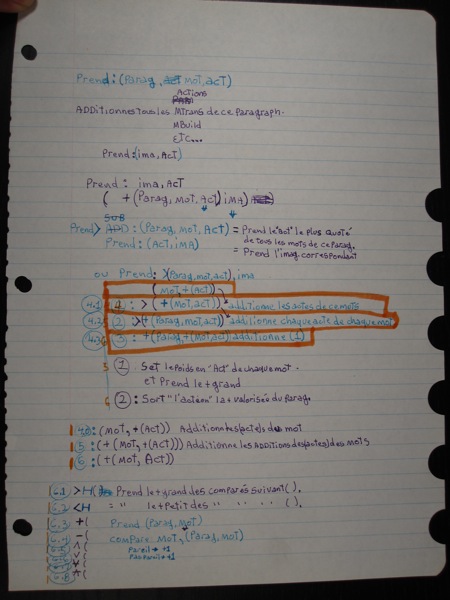 Prend:(Parag, act mot, act)
Actions
ADDitionnes tous les Mtrans de ce Paragraph.
MBuild
ETC...
Prend:(ima, Act)
Prend: ima, Act
( +(Parag, mot, Act) imA)
SUB
Prend> ADD:(Parag, mot, Act) = Prend le "act" le plus quoté
de tous les mots de ce Parag.
Prend: (Act, imA)
= Prend l'imag. correspondant
ou Prend: >(Parag, mot, act), ima
(mot, +(Act))
4.1 1: >(+(mot, act)) additionne les actes de ce mots
4.2 2: >+(Parag, mot, act)) additionne chaque acte de chaque mot
4.3 3: +(Parag, +(mot, act)) additionne (1)
5 1 Set le Poids en "Act" de chaque mot.
et Prend le + grand
6 2: Sort "l'action" la + valorisée du Parag.
4.0:(mot, +(Act)) Additionne les (acte)s du mot
5:(+(mot, +(Act))) Additionne les ADDitions des (actes) des mots
6:(+(mot, Act))
6.1 >H( Prend le + grand des comparés suivant( ).
6.2 <H = " le + petit des " " " ( ).
6.3 +( Prend (Parag, mot)
6.4 -( compare mot, (Parag, mot)
^( Pareil → +1
v( Pas Pareil → -1
*(